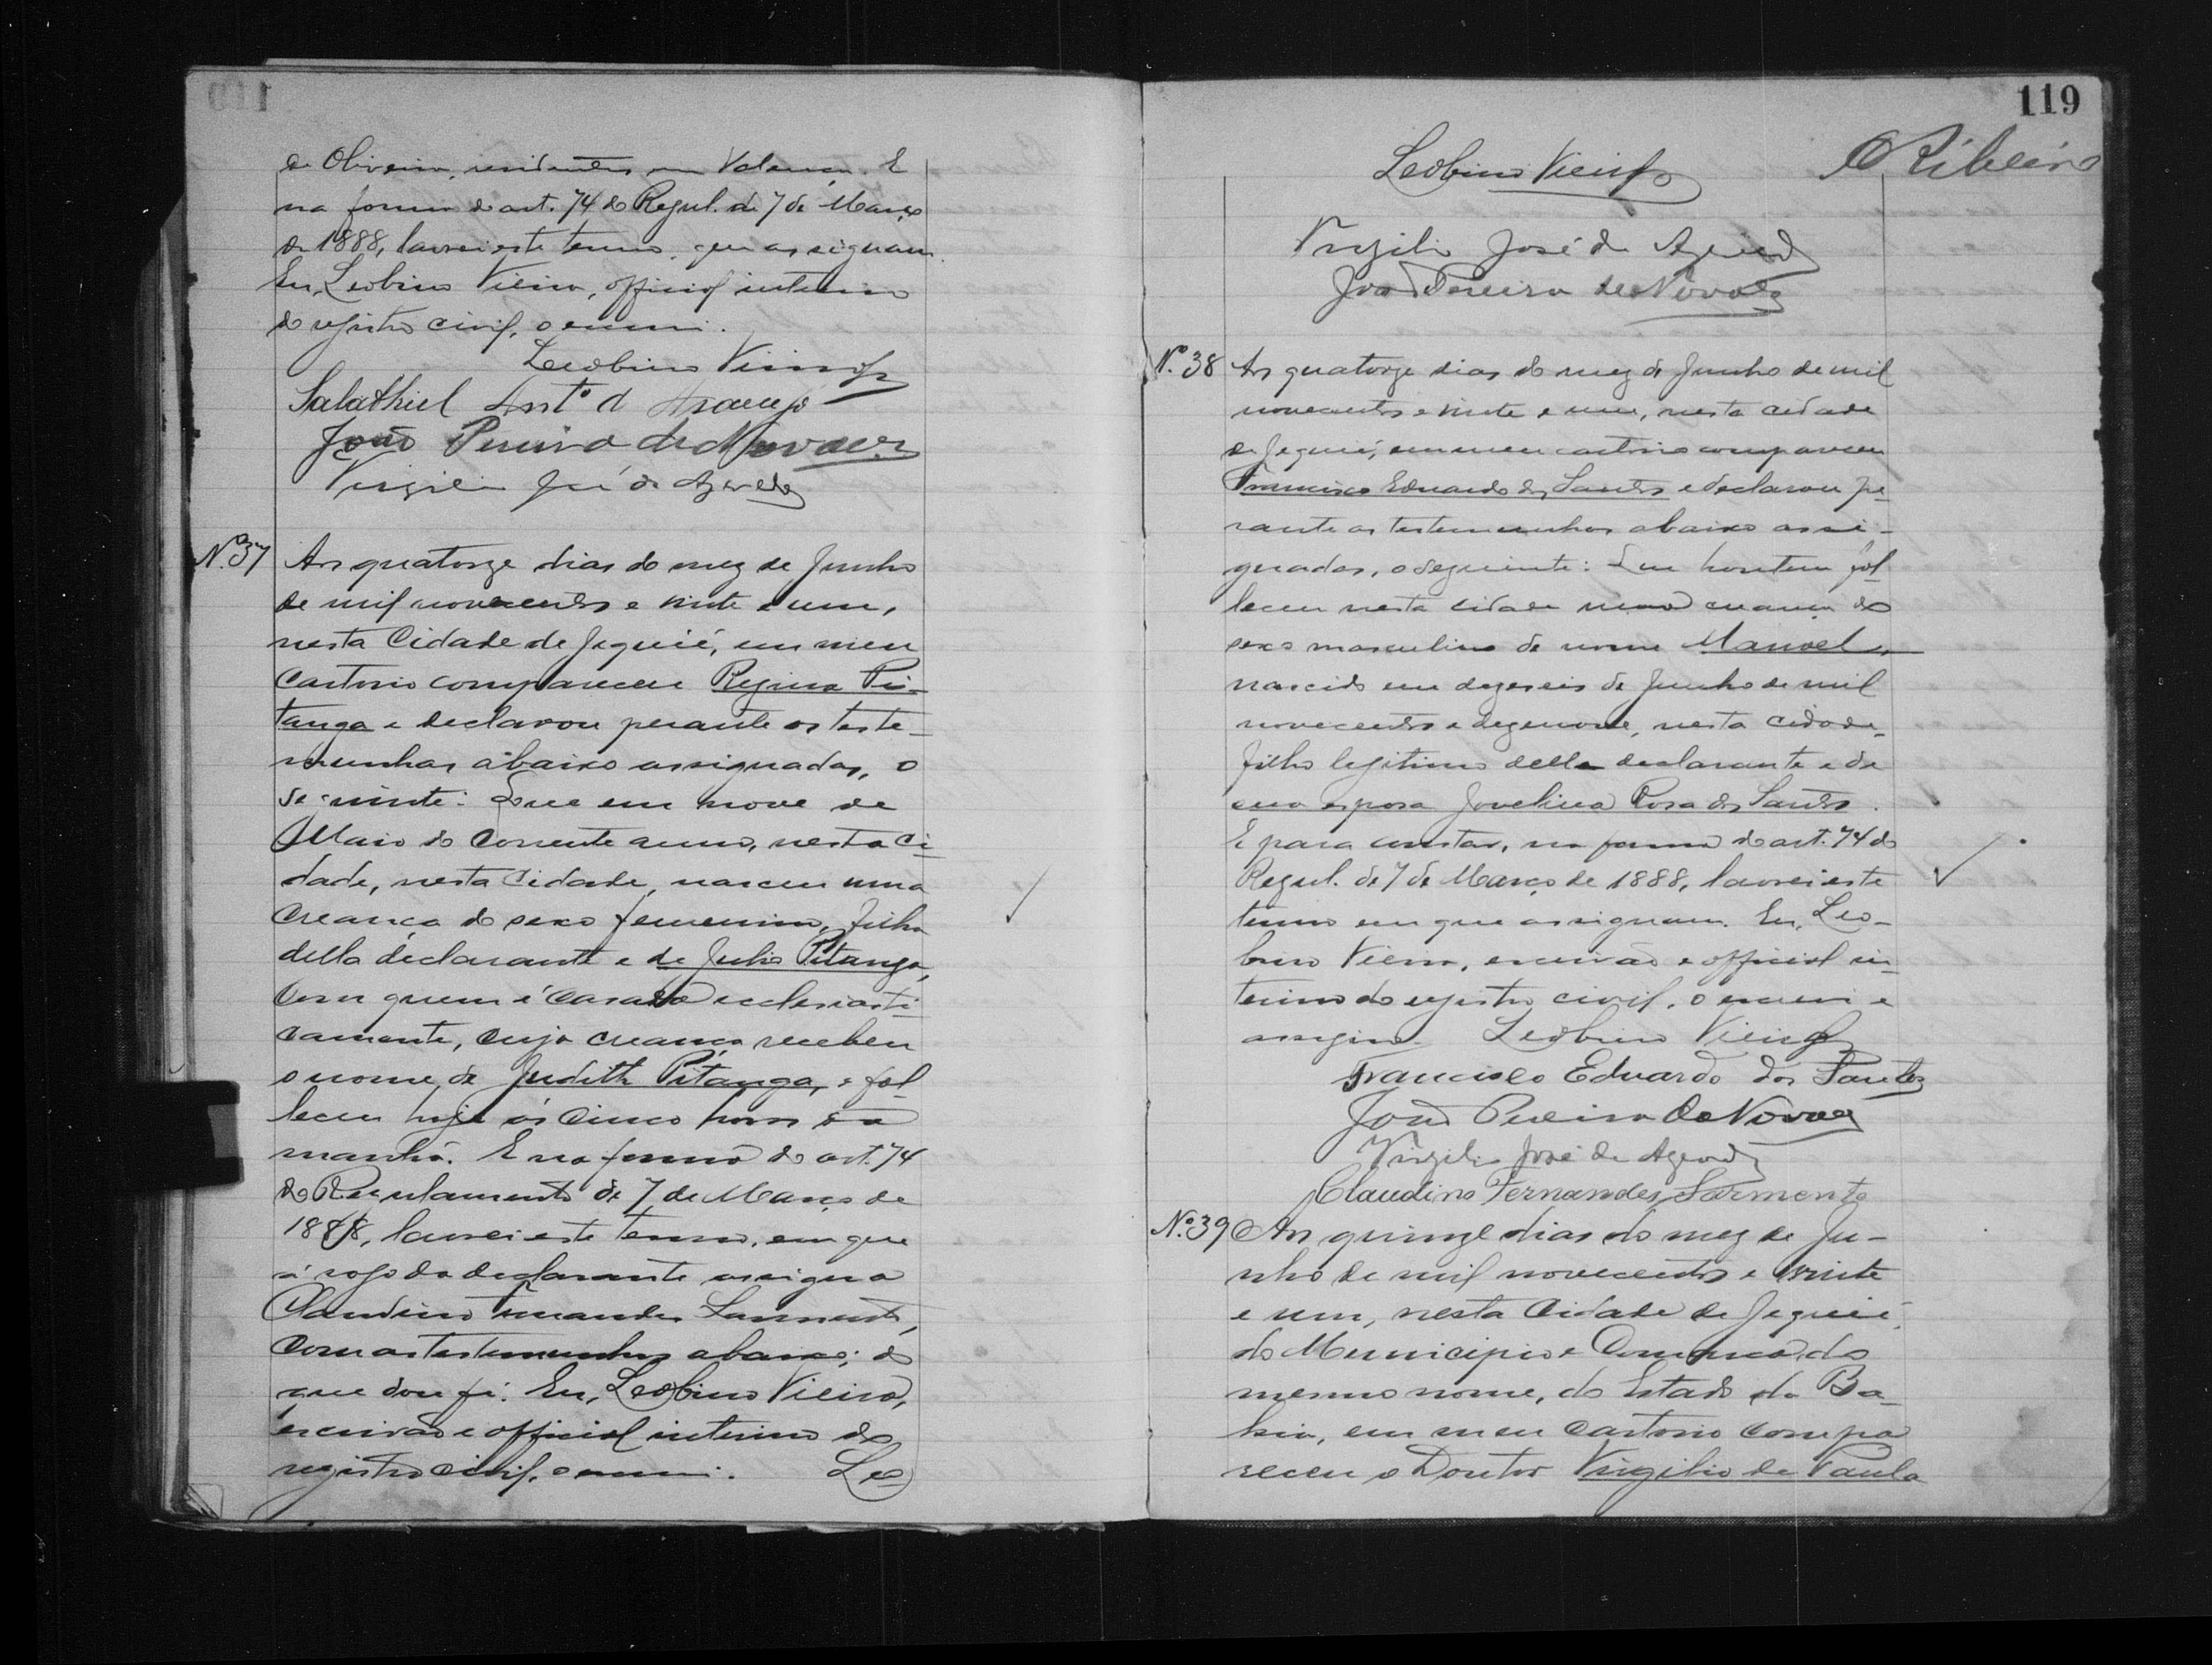 de Oliveira, residentes em Valença. E
na forma do art. 74 do Regul. de 7 de Março
de 1888, lavrei este termo, que assignam.
Eu, Leobino Vieira, official interino
do registro civil, o escrevi.
Leobino Vieira
Salathiel Antº d Araujo
João Pereira de Novaes
Virgilio José de Azevedo
Nº 37
Aos quatorze dias do mez de Junho
de mil novecentos e vinte e um,
nesta Cidade de Jequié, em meu
Cartorio compareceu Regina Pi-
tanga e declarou perante as teste-
munhas abaixo assignadas, o
seguinte: Que em nove de
Maio do corrente anno, nesta Ci-
dade, nesta Cidade, nasceu uma
creança do sexo femenino, filha
della declarante e de Julio Pitanga,
com quem é casada ecclesiasti-
camente, cuja creança recebeu
o nome de Judith Pitanga, e fal-
leceu hoje ás cinco horas da
manhã. E na forma do art. 74
do Regulamento de 7 de Março de
1888, lavrei este termo, em que
á rogo da declarante assigna
Claudino Fernandes Sarmento,
com as testemunhas abaixo; do
que dou fé. Eu, Leobino Vieira,
escrivão e official interino do
registro civil, o escrevi. Leo
119
Leobino Vieira
O Ribeiro
Virgilio José de Azevedo
João Pereira de Novaes
Nº 38
Aos quatorze dias do mez de Junho de mil
novecentos e vinte e um, nesta cidade
de Jequié, em meu cartorio compareceu
Francisco Eduardo dos Santos e declarou pe-
rante as testemunhas abaixo assi-
gnadas, o seguinte: Que hontem fal-
leceu nesta cidade uma creança do
sexo masculino de nome Manoel,
nascido em dezeseis de Junho de mil
novecentos e dezenove, nesta cidade,
filho legitimo delle declarante e de
sua esposa Jovelina Rosa dos Santos.
E para constar, na forma do art. 74 do
Regul. de 7 de Março de 1888, lavrei este
termo em que assignam. Eu, Leo-
bino Vieira, escrivão e official in-
terino do registro civil, o escrevi e
assigno. Leobino Vieira
Francisco Eduardo dos Santos
João Pereira de Novaes
Virgilio José de Azevedo
Claudino Fernandes Sarmento
Nº 39
Aos quinze dias do mez de Ju-
nho de mil novecentos e vinte
e um, nesta Cidade de Jequié,
do Municipio e Comarca do
mesmo nome, do Estado da Ba-
hia, em meu Cartorio compa
receu o Doutor Virgilio de Paula